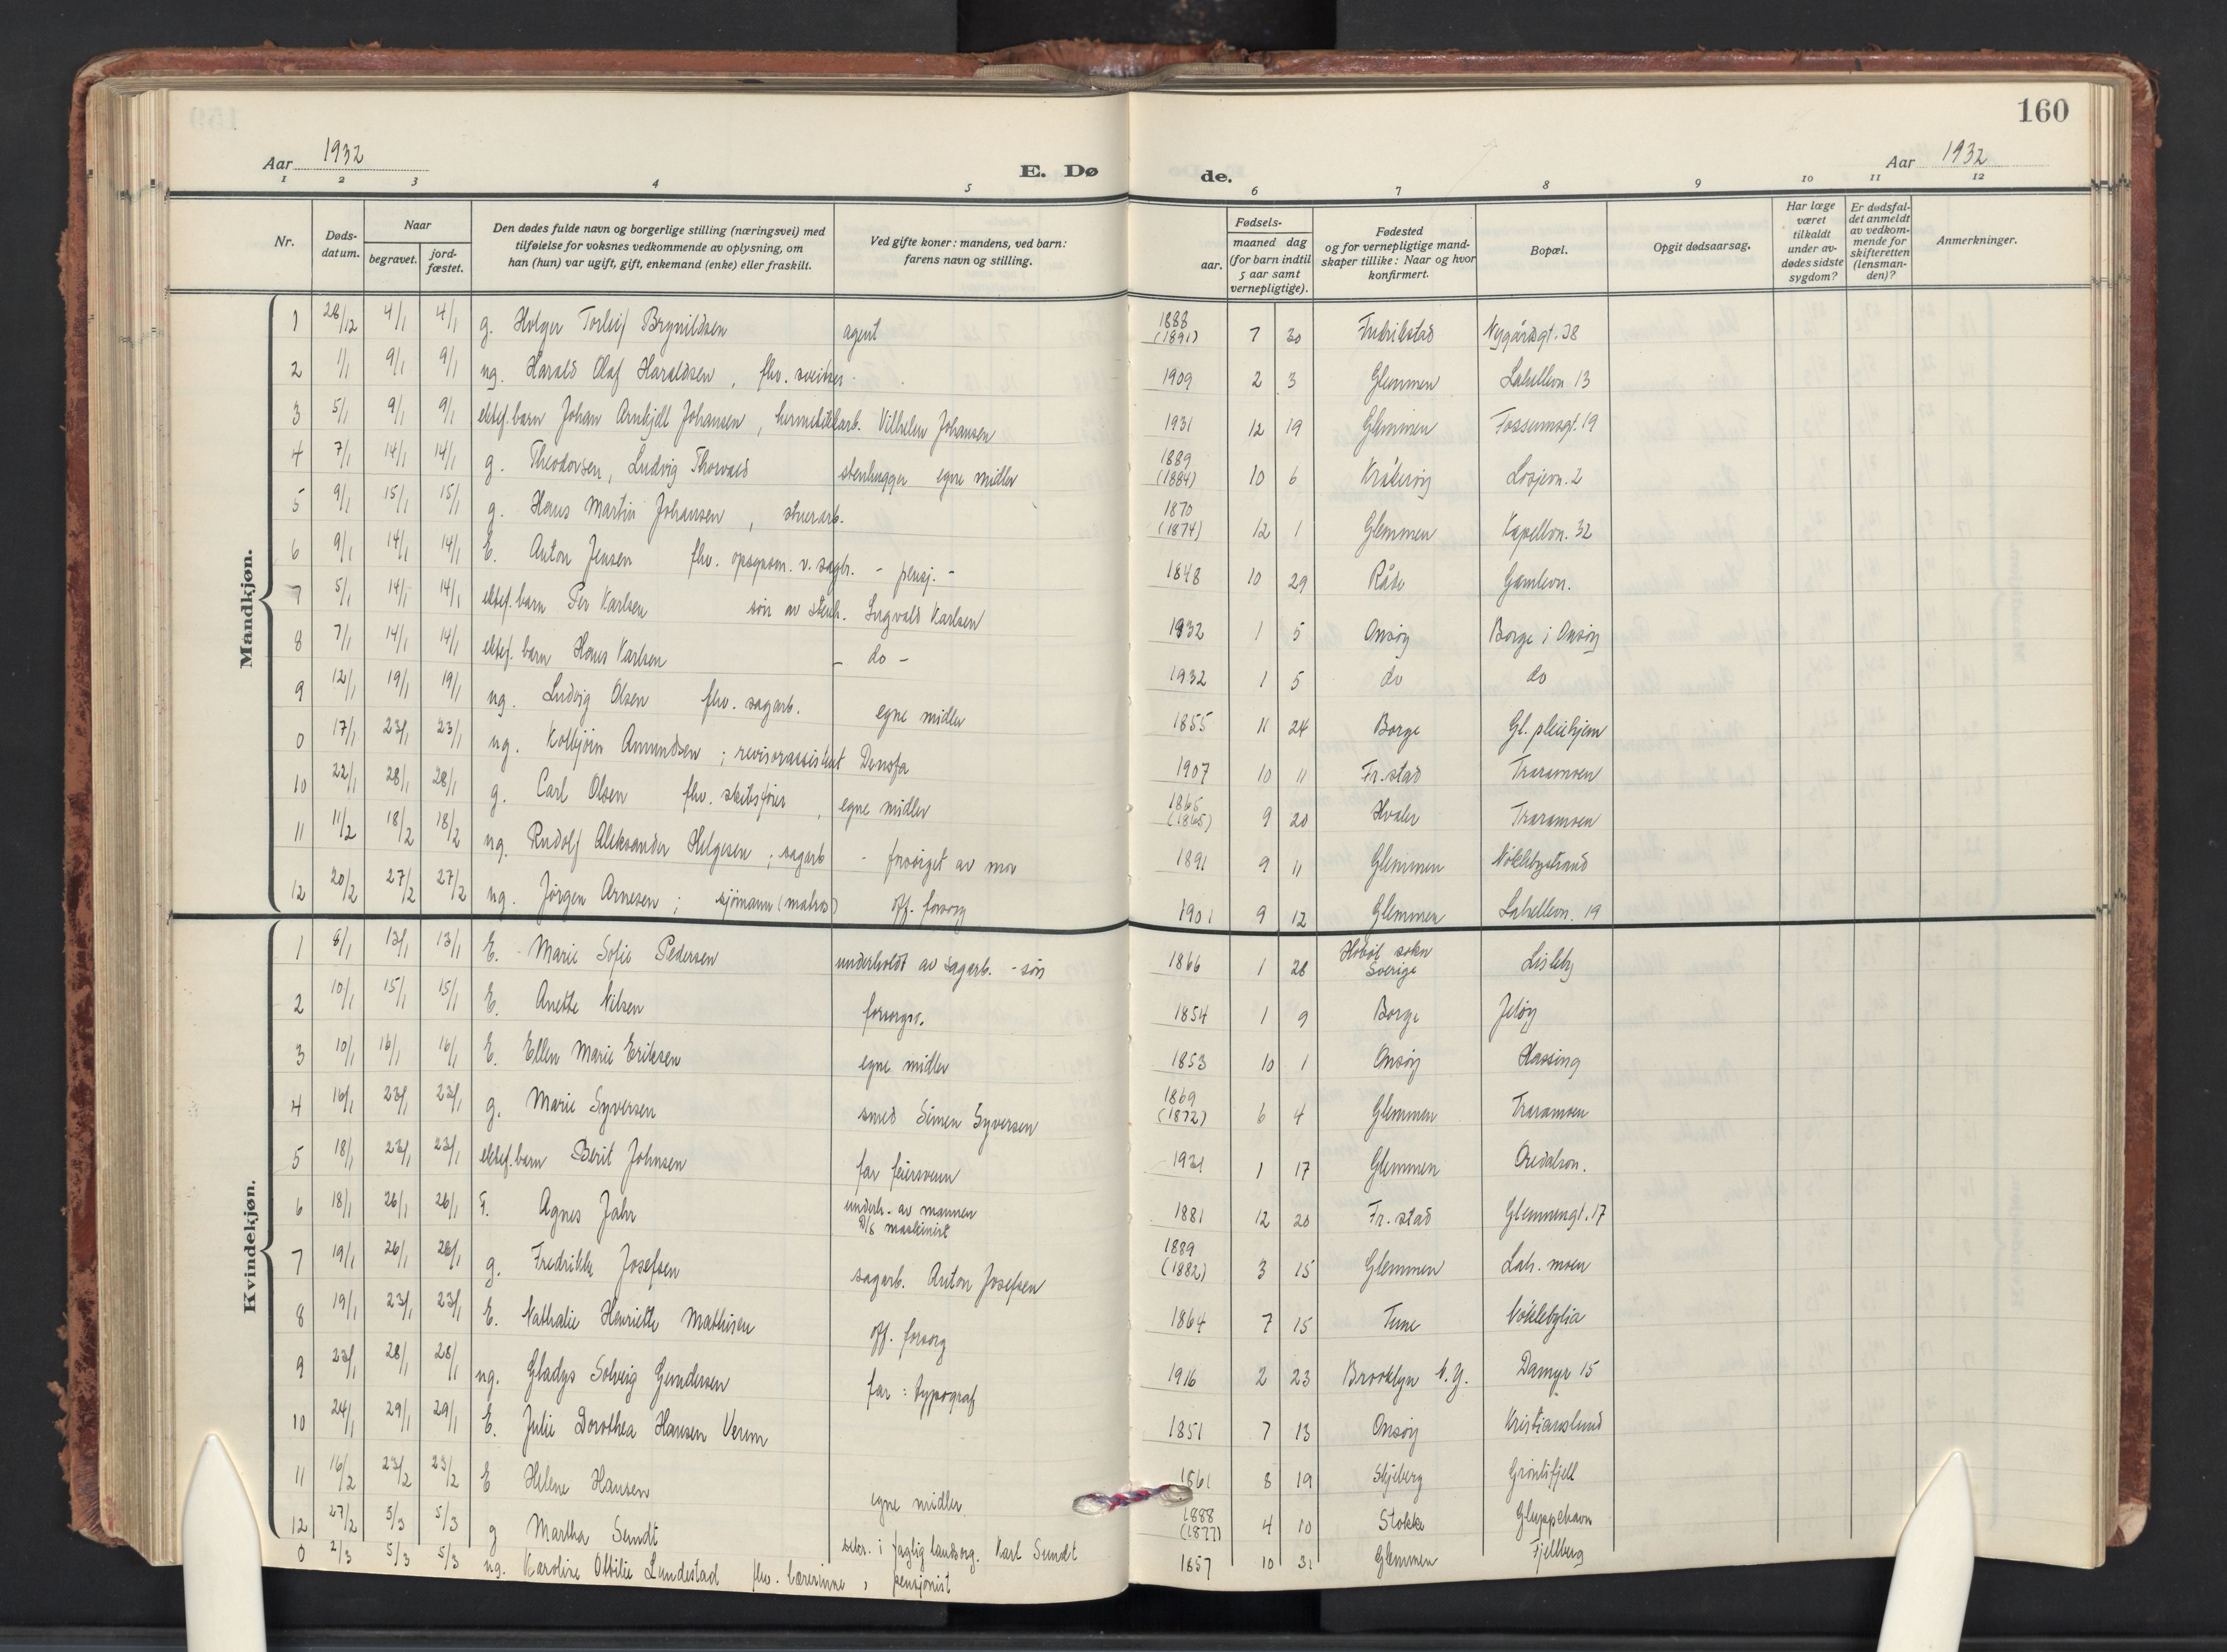 160
Aar 1932
E. Dø de.
Aar 1932
1 2 3 4 5 6 7 8 9 10 11 12
Nr.
Døds-datum.
Naar
begravet.
jord-fæstet.
Den dødes fulde navn og borgerlige stilling (næringsvei) med
tilføielse for voksnes vedkommende av oplysning, om
han (hun) var ugift, gift, enkemand (enke) eller fraskilt.
Ved gifte koner: mandens, ved barn:
farens navn og stilling.
Fødsels-
aar.
maaned dag
(for barn indtil
5 aar samt
vernepligtige).
Fødested
og for vernepligtige mand-
skaper tillike: Naar og hvor
konfirmert.
Bopæl.
Opgit dødsaarsag.
Har læge
været
tilkaldt
under av-
dødes sidste
sygdom?
Er dødsfal-
det anmeldt
av vedkom-
mende for
skifteretten
(lensman-
den)?
Anmerkninger.
Mandkjøn.
1 28/12 4/1 4/1 g. Holger Torleif Brynildsen agent 1888 (1891) 7 30 Fredrikstad Nygårdsgt. 38
2 1/1 9/1 9/1 ug. Harald Olaf Haraldsen, fhv. 1909 2 3 Glemmen Labellvn 13
3 5/1 9/1 9/1 ektef. barn Johan Arnkjell Johansen, hermetikkarb. Vilhelm Johansen 1931 12 19 Glemmen Fossumsgt. 19
4 7/1 14/1 14/1 g. Theodorsen, Ludvig Thorvald stenhugger egne midler 1889 (1884) 10 6 Kråkerøy Losjevn. 2
5 9/1 15/1 15/1 g. Hans Martin Johansen, stuerarb. 1870 (1874) 12 1 Glemmen Kapellvn. 32
6 9/1 14/1 14/1 E. Anton Jensen fhv. opsynsm. v. sagbr. - pensj. - 1848 10 29 Råde Gamlevn.
7 5/1 14/1 14/1 ektef. barn Per Karlsen søn av stenh. Ingvald Karlsen 1932 1 5 Onsøy Borge i Onsøy
8 7/1 14/1 14/1 ektef. barn Hans Karlsen - do - 1932 1 5 do do
9 12/1 19/1 19/1 ug. Ludvig Olsen fhv. sagarb. egne midler 1855 11 24 Borge Gl. pleiehjem
0 17/1 23/1 23/1 ug. Kolbjørn Amundsen; revisorassistent Denofa 1907 10 11 Fr.stad Traramoen
10 22/1 28/1 28/1 g. Carl Olsen fhv. skibsfører, egne midler 1865 (1865) 9 20 Hvaler Traramoen
11 11/2 18/2 18/2 ug. Rudolf Aleksander Helgesen; sagarb - forsørget av mor 1891 9 11 Glemmen Nøklebystrand
12 20/2 27/2 27/2 ug. Jørgen Arnesen; sjømann (matros) off. forsorg 1901 9 12 Glemmen Labellvn. 19
Kvindekjøn.
1 8/1 13/1 13/1 E. - Marie Sofie Pedersen underholdt av sagarb. - søn 1866 1 28 sokn Sverige Lisleby
2 10/1 15/1 15/1 E. Anette Nilsen forsorgsv. 1854 1 9 Borge Jeløy
3 10/1 16/1 16/1 E. Ellen Marie Eriksen egne midler 1853 10 1 Onsøy Hassing
4 16/1 23/1 23/1 g. Marie Syversen smed Simen Syversen 1869 (1872) 6 4 Glemmen Traramoen
5 18/1 23/1 23/1 ektef. barn Berit Johnsen far feiersvenn 1931 1 17 Glemmen Oredalsvn.
6 18/1 26/1 26/1 F. Agnes Jahr underh. av mannen D/S maskinist 1881 12 20 Fr.stad Glemmengt. 17
7 19/1 26/1 26/1 g. Fredrikke Josefsen sagarb. Anton Josefsen 1889 (1882) 3 15 Glemmen Lah. moen
8 19/1 23/1 23/1 E. Nathalie Henriette Mathisen off. forsorg 1864 7 15 Tune Nøklebylia
9 23/1 28/1 28/1 ug. Gladys Solveig Gundersen far: typograf 1916 2 23 Brooklyn N.Y. Damyr 15
10 24/1 29/1 29/1 E. Julie Dorothea Hansen Verum 1851 7 13 Onsøy Kristianslund
11 16/2 23/2 23/2 E Helene Hansen egne midler 1861 8 19 Skjeberg Grønlifjell
12 27/2 5/3 5/3 g Martha Sundt sekr. i faglig landsorg. Karl Sundt 1888 (1877) 4 10 Stokke Gluppehavn
0 2/3 5/3 5/3 ug. Karoline Ottilie Lundestad fhv. lærerinne, pensjonist 1857 10 31 Glemmen Fjellberg